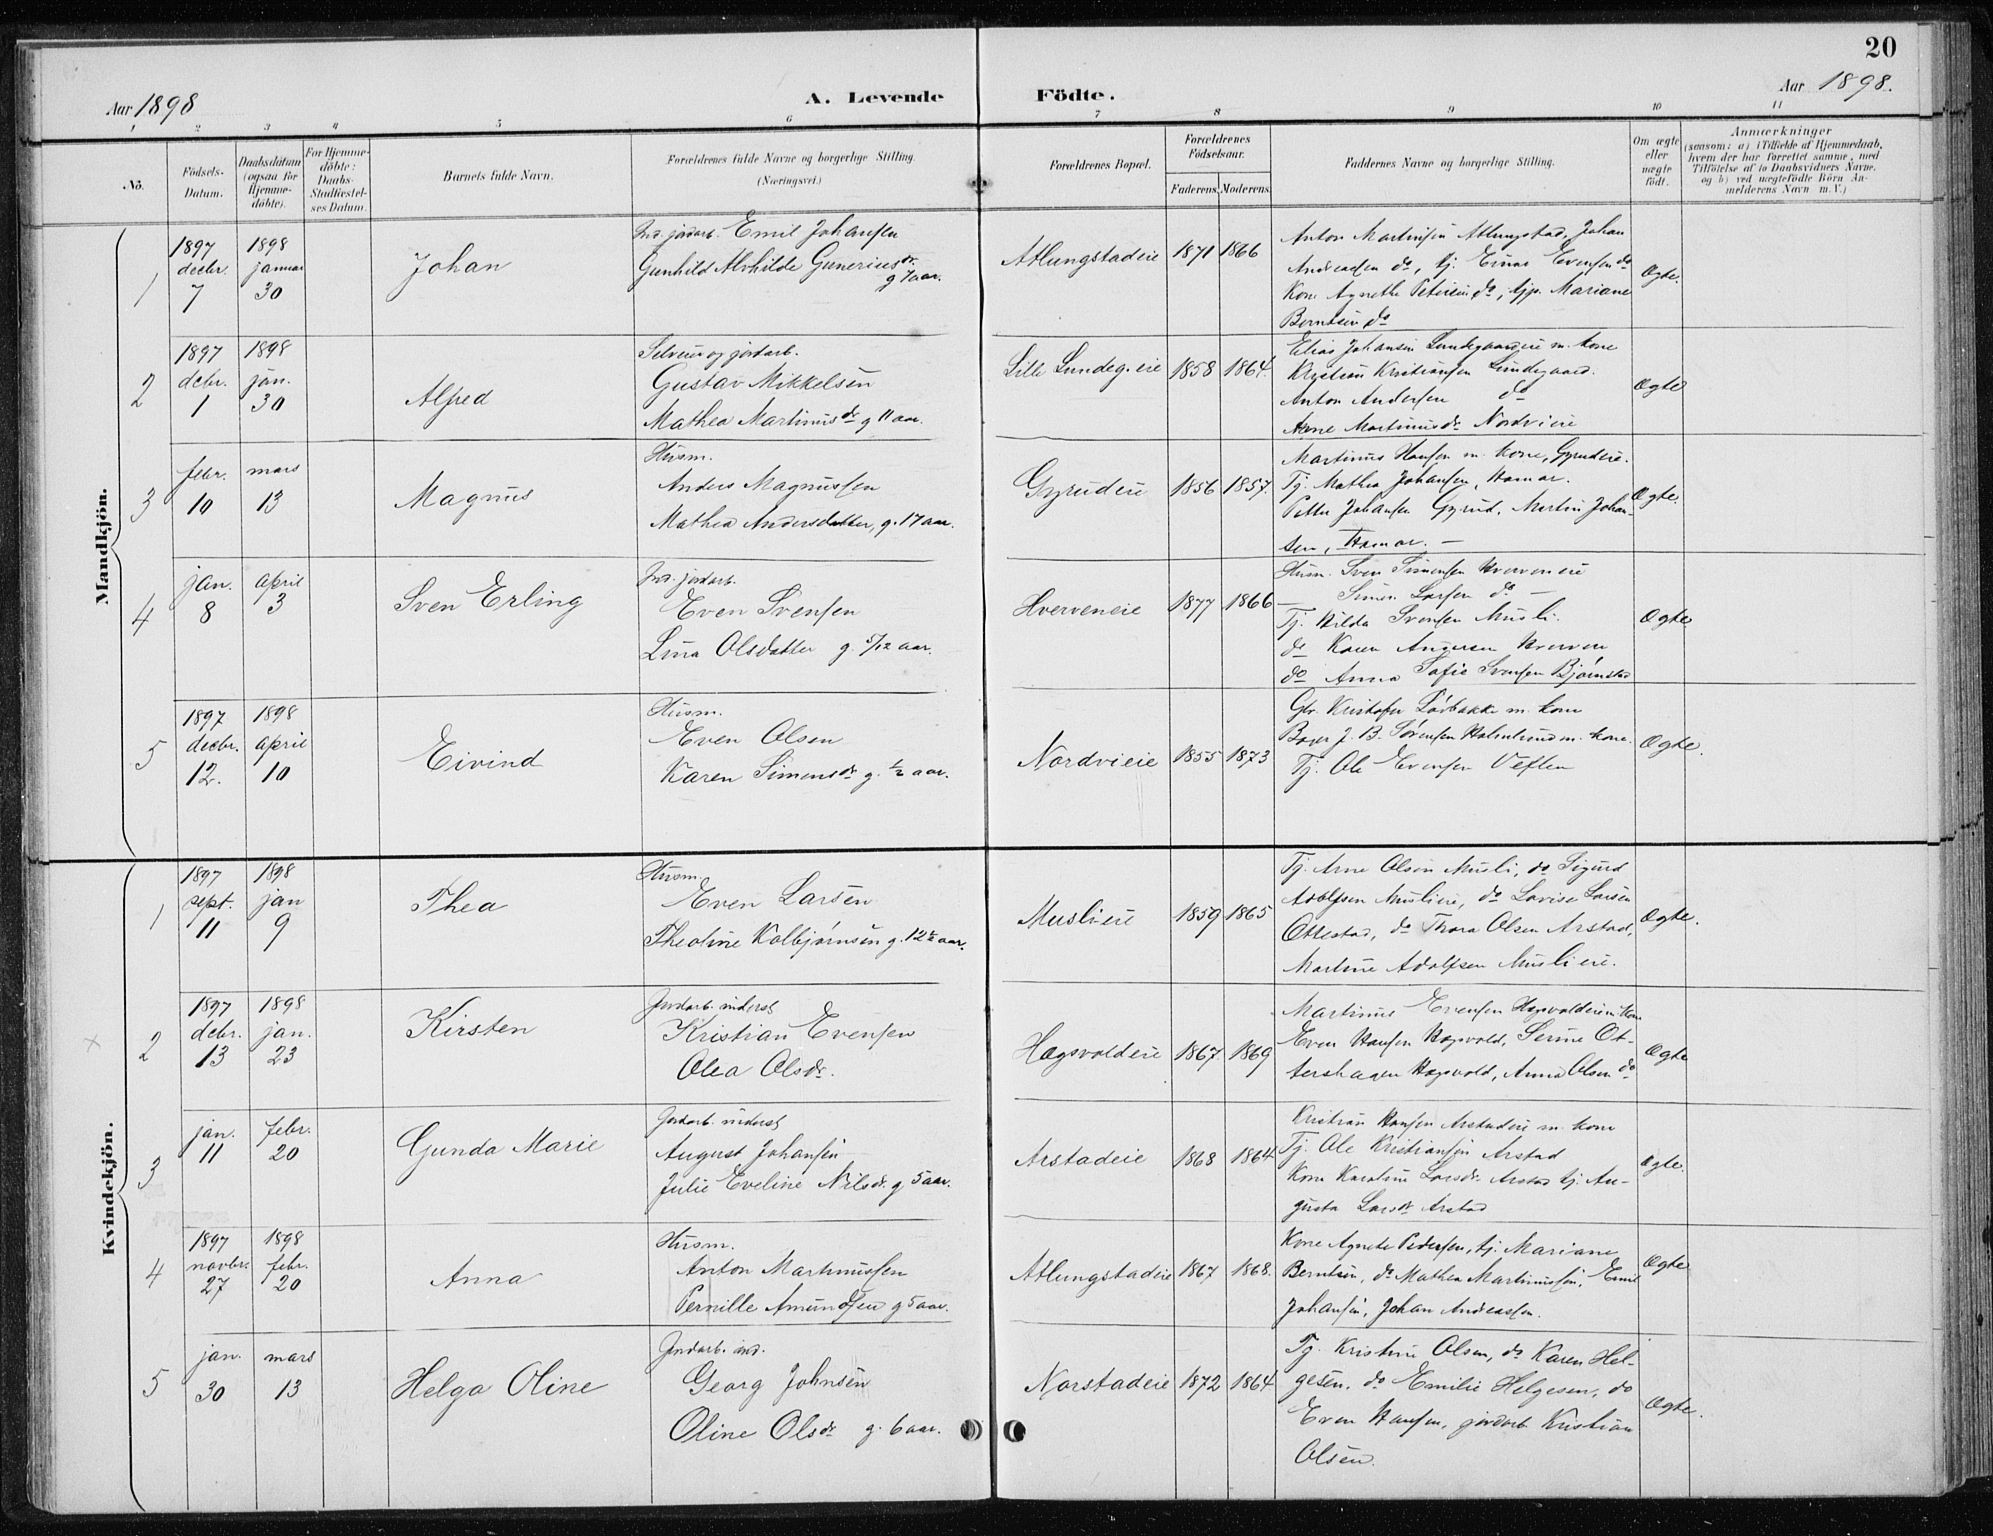 20
Aar 1898
A. Levende Födte.
Aar 1898.
1 2 3 4 5 6 7 8 9 10 11
No.
Födsels-Datum.
Daabsdatum (ogsaa for Hjemme-döbte).
For Hjemme-döbte: Daabs-Stadfæstel-ses Datum.
Barnets fulde Navn.
Forældrenes fulde Navne og borgerlige Stilling. (Næringsvei.)
Forældrenes Bopæl.
Forældrenes Födselsaar.
Faderens. Moderens.
Faddernes Navne og borgerlige Stilling.
Om ægte eller uægte födt.
Anmærkninger
(saasom: a) i Tilfælde af Hjemmedaab, hvem der har forrettet samme, med Tilföielse af to Daabsvidners Navne. og b) ved uægtefödte Börn An-melderens Navn m. V.)
Mandkjön.
1
1897 decbr. 7
1898 januar 30
Johan
Ind. jordarb. Emil Johansen
Gunhild Alvhilde Guneriusdr. g 7 aar.
Atlungstadeie
1871 1866
Anton Martinsen Atlungstad, Johan
Andreasen do, tj. Einar Evensen do
Kone Agnethe Petersen do, tjp. Mariane
Berntsen do
Ægte.
2
1897 decbr. 1
1898 jan. 30
Alfred
Selveier og jordarb.
Gustav Mikkelsen
Mathea Martinusdr g 11 aar.
Lille Lundeg. eie
1858 1864.
Elias Johansen Lundegaardeie m. kone
Kristian Kristiansen Lundegaard.
Anton Andersen do
Anne Martinusdr. Nordvieie
Ægte
3
febr. 10
mars 13
Magnus
Husm.
Anders Magnussen
Mathea Andersdatter, g. 17 aar.
Gyrudeie
1856 1857.
Martinus Hansen m. kone, Gyrudeie.
Tj. Mathea Johansen, Hamar.
Petter Johansen Gyrud, Martin Johan-
sen, Hamar. —
Ægte.
4
jan. 8
april 3
Sven Erling
Ind. jordarb.
Even Svensen
Lina Olsdatter g. 5/12 aar.
Hverveneie
1877 1866
Husm. Sven Simensen Hverveneie
— Simen Larsen do —
Tj. Hilda Svensen Musli.
do Karen Hverven
do Anna Sofie Svensen Bjørnstad
Ægte
5
1897 decbr. 12.
1898 april 10
Eivind
Husm.
Even Olsen
Karen Simensdr g. ½ aar.
Nordvieie
1855 1873
Gbr. Kristofer m. kone
J. B. Sørensen m. kone.
Tj. Ole Evensen Veflen
Ægte.
Kvindekjön.
1
1897 sept. 11
1898 jan 9
Thea
Husm.
Even Larsen
Theoline Kolbjørnsen g. 12½ aar.
Muslieie
1859 1865
Tj. Arne Olsen Musli, do Sigurd
Adolfsen Muslieie, do Lovise Larsen
Ottestad, do Thora Olsen Arstad,
Martine Adolfsen Muslieie.
Ægte.
x
2
1897 decbr. 13
1898 jan. 23
Kirsten
Jordarb. inderst
Kristian Evensen
Olea Olsdr.
Hagsvoldeie
1867. 1869
Martinus Evensen Hagsvoldeie m. kone
Even Hansen Hagsvold, Serine Ot-
tershagen Hagsvold, Anna Olsen do
Ægte
3
jan. 11
febr. 20
Gunda Marie
Jordarb. inderst
August Johansen
Julie Eveline Nilsdr. g 5 aar.
Arstadeie
1868 1864
Kristian Hansen Arstadeie m. kone
Tj. Ole Kristiansen Arstad
Kone Karoline Larsdr. Arstad tj. Au-
gusta Larsdr Arstad
Ægte.
4
1897 novbr. 27
1898 febr. 20
Anna
Husm.
Anton Martinussen
Pernille Amundsen g 5 aar.
Atlungstadeie
1867 1868.
Kone Agnete Pedersen, tj. Mariane
Berntsen, do Mathea Martinussen, Emil
Johansen, Johan Andreassen.
Ægte
5
jan. 30
mars 13
Helga Oline
Jordarb. ind.
Georg Johnsen
Oline Olsdr g. 6 aar.
Norstadeie
1872 1864
Tj. Kristine Olsen, do Karen Hel-
gesen. do Emilie Helgesen, do
Even Hansen, jordarb. Kristian
Olsen.
Ægte.